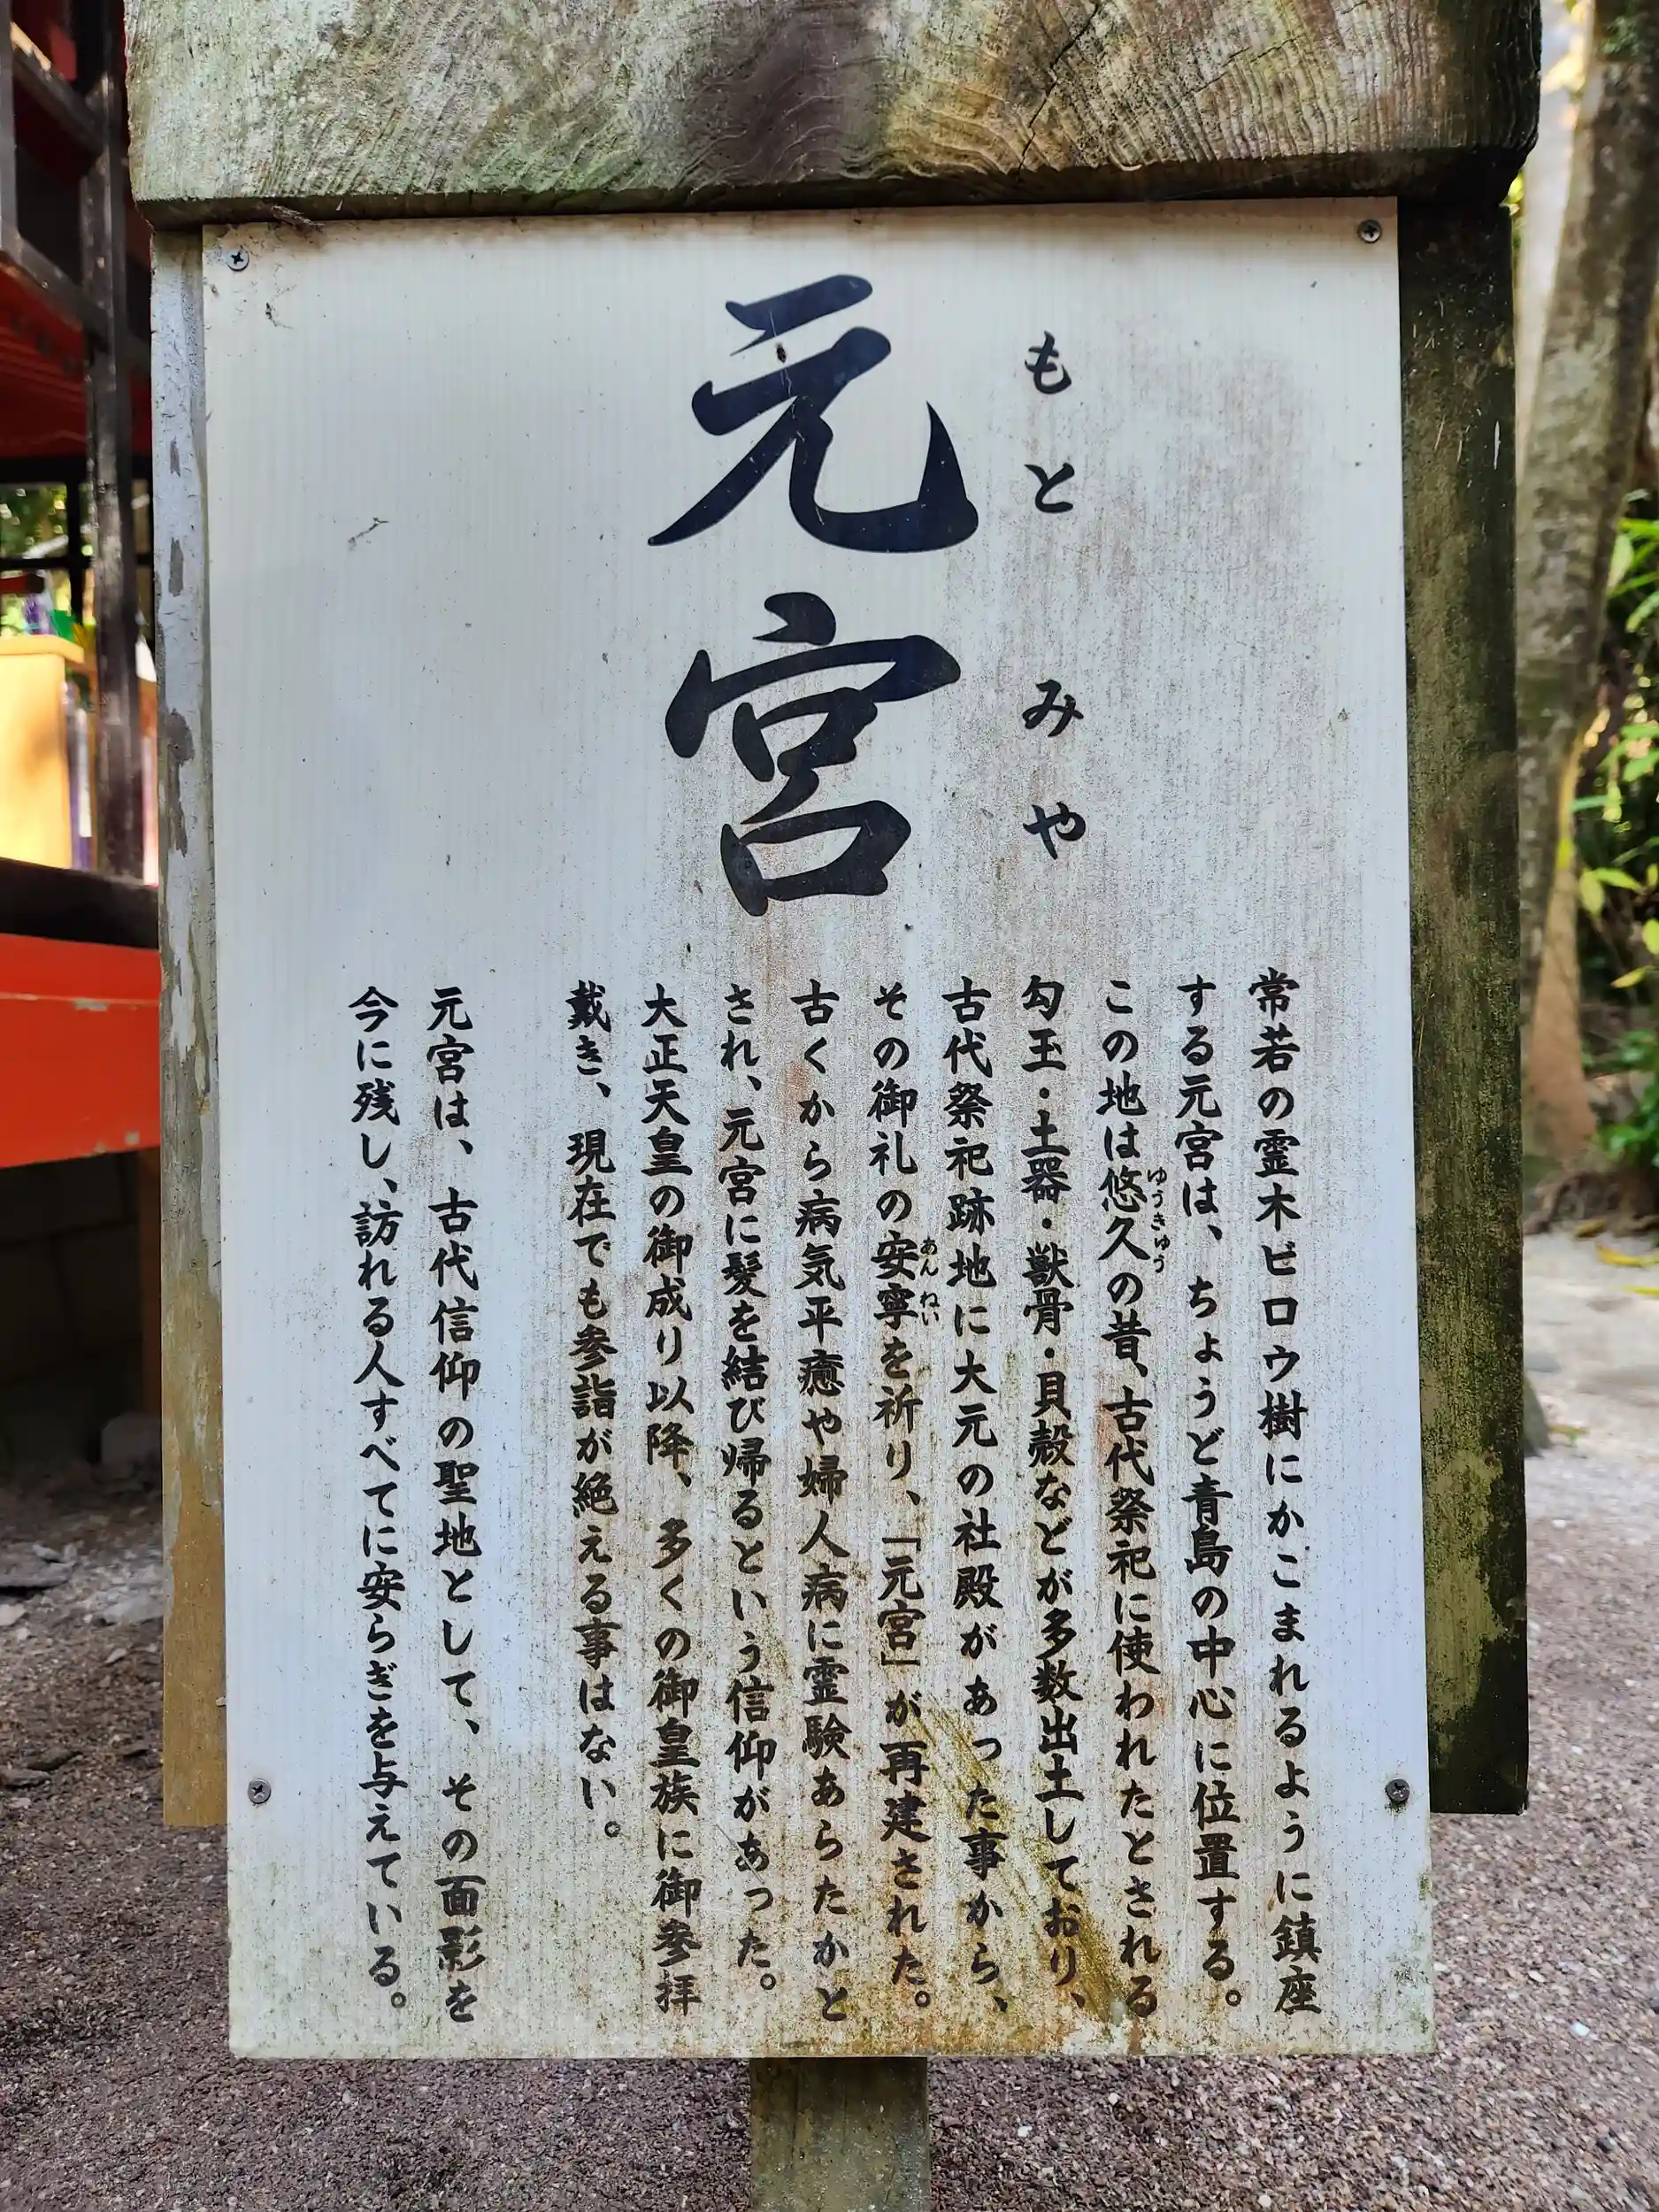 もとみや
元宮
常若の霊木ビロウ樹にかこまれるように鎮座
する元宮は、ちょうど青島の中心に位置する。
この地は悠久の昔、古代祭祀に使われたとされる
ゆうきゅう
勾玉・土器・獣骨・貝殻などが多数出土しており、
古代祭祀跡地に大元の社殿があった事から、
その御礼の安寧を祈り、「元宮」が再建された。
あんねい
古くから病気平癒や婦人病に霊験あらたかと
され、元宮に髪を結び帰るという信仰があった。
大正天皇の御成り以降、多くの御皇族に御参拝
戴き、現在でも参詣が絶える事はない。
元宮は、古代信仰の聖地として、その面影を
今に残し、訪れる人すべてに安らぎを与えている。